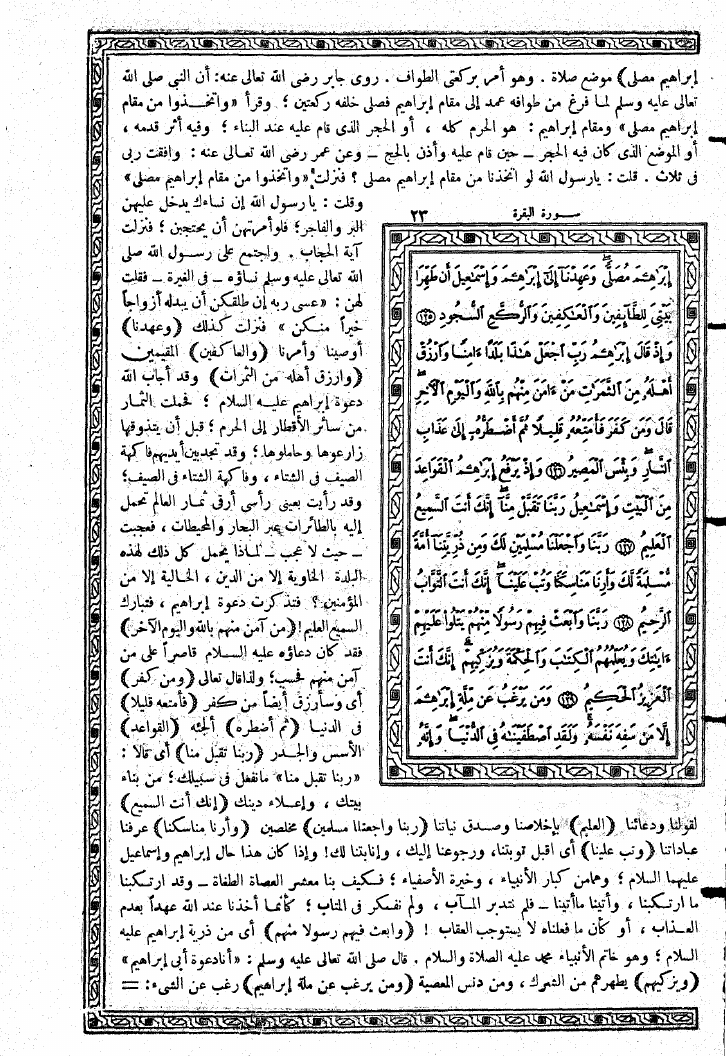 إبراهيم مصلى) موضع صلاة . وهو أمر بركعتى الطواف . روى جابر رضى الله تعالى عنه: أن النبى صلى الله
تعالى عليه وسلم لما فرغ من طوافه عمد إلى مقام إبراهيم فصلى خلفه ركعتين ؛ وقرأ «واتخذوا من مقام
إبراهيم مصلى» ومقام إبراهيم : هو الحرم كله ، أو الحجر الذى قام عليه عند البناء ؛ وفيه أثر قدمه ،
أو الموضع الذى كان فيه الحجر – حين قام عليه وأذن بالحج – وعن عمر رضى الله تعالى عنه : وافقت ربى
فى ثلاث . قلت : يارسول الله لو اتخذنا من مقام إبراهيم مصلى ؟ فنزلت «واتخذوا من مقام إبراهيم مصلى»
وقلت : يارسول الله إن نساءك يدخل عليهن
البر والفاجر؛ فلو أمرتهن أن يحتجبن ؛ فنزلت
آية الحجاب . واجتمع على رسول الله صلى
الله تعالى عليه وسلم نساؤه – فى الغيرة – فقلت
لهن : «عسى ربه إن طلقكن أن يبدله أزواجاً
خيراً منكن » فنزلت كذلك (وعهدنا)
أوصينا وأمرنا (والعاكفين) المقيمين
(وارزق أهله من الثمرات) وقد أجاب الله
دعوة إبراهيم عليه السلام ؛ فحملت الثمار
من سائر الأقطار إلى الحرم ؛ قبل أن يتذوقها
زارعوها وحاملوها؛ وقد تجد بين أيديهم فاكهة
الصيف فى الشتاء ، وفاكهة الشتاء فى الصيف؛
وقد رأيت بعينى رأسى أرقى ثمار العالم تحمل
إليه بالطائرات عبر البحار والمحيطات ، فعجبت
– حيث لا عجب – لماذا يحمل كل ذلك لهذه
البلدة الخاوية إلا من الدين ، الخالية إلا من
المؤمنين ؟ فتذكرت دعوة إبراهيم ، فتبارك
السميع العليم! (من آمن منهم بالله واليوم الآخر)
فقد كان دعاؤه عليه السلام قاصراً على من
آمن منهم فحسب؛ ولذا قال تعالى (ومن كفر)
أى وسأرزق أيضاً من كفر (فأمتعه قليلا)
فى الدنيا (ثم أضطره) ألجئه (القواعد)
الأسس والجدر (ربنا تقبل منا) أى قالا :
«ربنا تقبل منا» ما نفعل فى سبيلك؛ من بناء
بيتك ، وإعلاء دينك (إنك أنت السميع)
٢٣ سورة البقرة
إِبْرَٰهِـۧمَ مُصَلًّى ۖ وَعَهِدْنَآ إِلَىٰٓ إِبْرَٰهِـۧمَ وَإِسْمَٰعِيلَ أَن طَهِّرَا
بَيْتِىَ لِلطَّآئِفِينَ وَٱلْعَٰكِفِينَ وَٱلرُّكَّعِ ٱلسُّجُودِ ﴿١٢٥﴾
وَإِذْ قَالَ إِبْرَٰهِـۧمُ رَبِّ ٱجْعَلْ هَٰذَا بَلَدًا ءَامِنًا وَٱرْزُقْ
أَهْلَهُۥ مِنَ ٱلثَّمَرَٰتِ مَنْ ءَامَنَ مِنْهُم بِٱللَّهِ وَٱلْيَوْمِ ٱلْءَاخِرِ ۖ
قَالَ وَمَن كَفَرَ فَأُمَتِّعُهُۥ قَلِيلًا ثُمَّ أَضْطَرُّهُۥٓ إِلَىٰ عَذَابِ
ٱلنَّارِ ۖ وَبِئْسَ ٱلْمَصِيرُ ﴿١٢٦﴾ وَإِذْ يَرْفَعُ إِبْرَٰهِـۧمُ ٱلْقَوَاعِدَ
مِنَ ٱلْبَيْتِ وَإِسْمَٰعِيلُ رَبَّنَا تَقَبَّلْ مِنَّآ ۖ إِنَّكَ أَنتَ ٱلسَّمِيعُ
ٱلْعَلِيمُ ﴿١٢٧﴾ رَبَّنَا وَٱجْعَلْنَا مُسْلِمَيْنِ لَكَ وَمِن ذُرِّيَّتِنَآ أُمَّةً
مُّسْلِمَةً لَّكَ وَأَرِنَا مَنَاسِكَنَا وَتُبْ عَلَيْنَآ ۖ إِنَّكَ أَنتَ ٱلتَّوَّابُ
ٱلرَّحِيمُ ﴿١٢٨﴾ رَبَّنَا وَٱبْعَثْ فِيهِمْ رَسُولًا مِّنْهُمْ يَتْلُوا۟ عَلَيْهِمْ
ءَايَٰتِكَ وَيُعَلِّمُهُمُ ٱلْكِتَٰبَ وَٱلْحِكْمَةَ وَيُزَكِّيهِمْ ۚ إِنَّكَ أَنتَ
ٱلْعَزِيزُ ٱلْحَكِيمُ ﴿١٢٩﴾ وَمَن يَرْغَبُ عَن مِّلَّةِ إِبْرَٰهِـۧمَ
إِلَّا مَن سَفِهَ نَفْسَهُۥ ۚ وَلَقَدِ ٱصْطَفَيْنَٰهُ فِى ٱلدُّنْيَا ۖ وَإِنَّهُۥ
لقولنا ودعائنا (العليم) بإخلاصنا وصدق نياتنا (ربنا واجعلنا مسلمين) مخلصين (وأرنا مناسكنا) عرفنا
عباداتنا (وتب علينا) أى اقبل توبتنا، ورجوعنا إليك ، وإنابتنا لك! وإذا كان هذا حال إبراهيم وإسماعيل
عليهما السلام ؛ وهما من كبار الأنبياء ، وخيرة الأصفياء ؛ فكيف بنا معشر العصاة الطغاة – وقد ارتكبنا
ما ارتكبنا ، وأتينا ما أتينا – فلم نتدبر المآب ، ولم نفكر فى المتاب ؛ كأنما أخذنا عند الله عهداً بعدم
العذاب ، أو كأن ما فعلناه لا يستوجب العقاب ! (وابعث فيهم رسولا منهم) أى من ذرية إبراهيم عليه
السلام ؛ وهو خاتم الأنبياء محمد عليه الصلاة والسلام . قال صلى الله تعالى عليه وسلم : «أنا دعوة أبى إبراهيم»
(ويزكيهم) يطهرهم من الشرك ، ومن دنس المعصية (ومن يرغب عن ملة إبراهيم) رغب عن الشىء: =